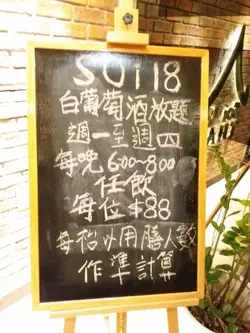 SUi18
白葡萄酒放題
週一至週四
每晚6:00-8:00
任飲
每位$88
每枱必用膳人數
作準計算